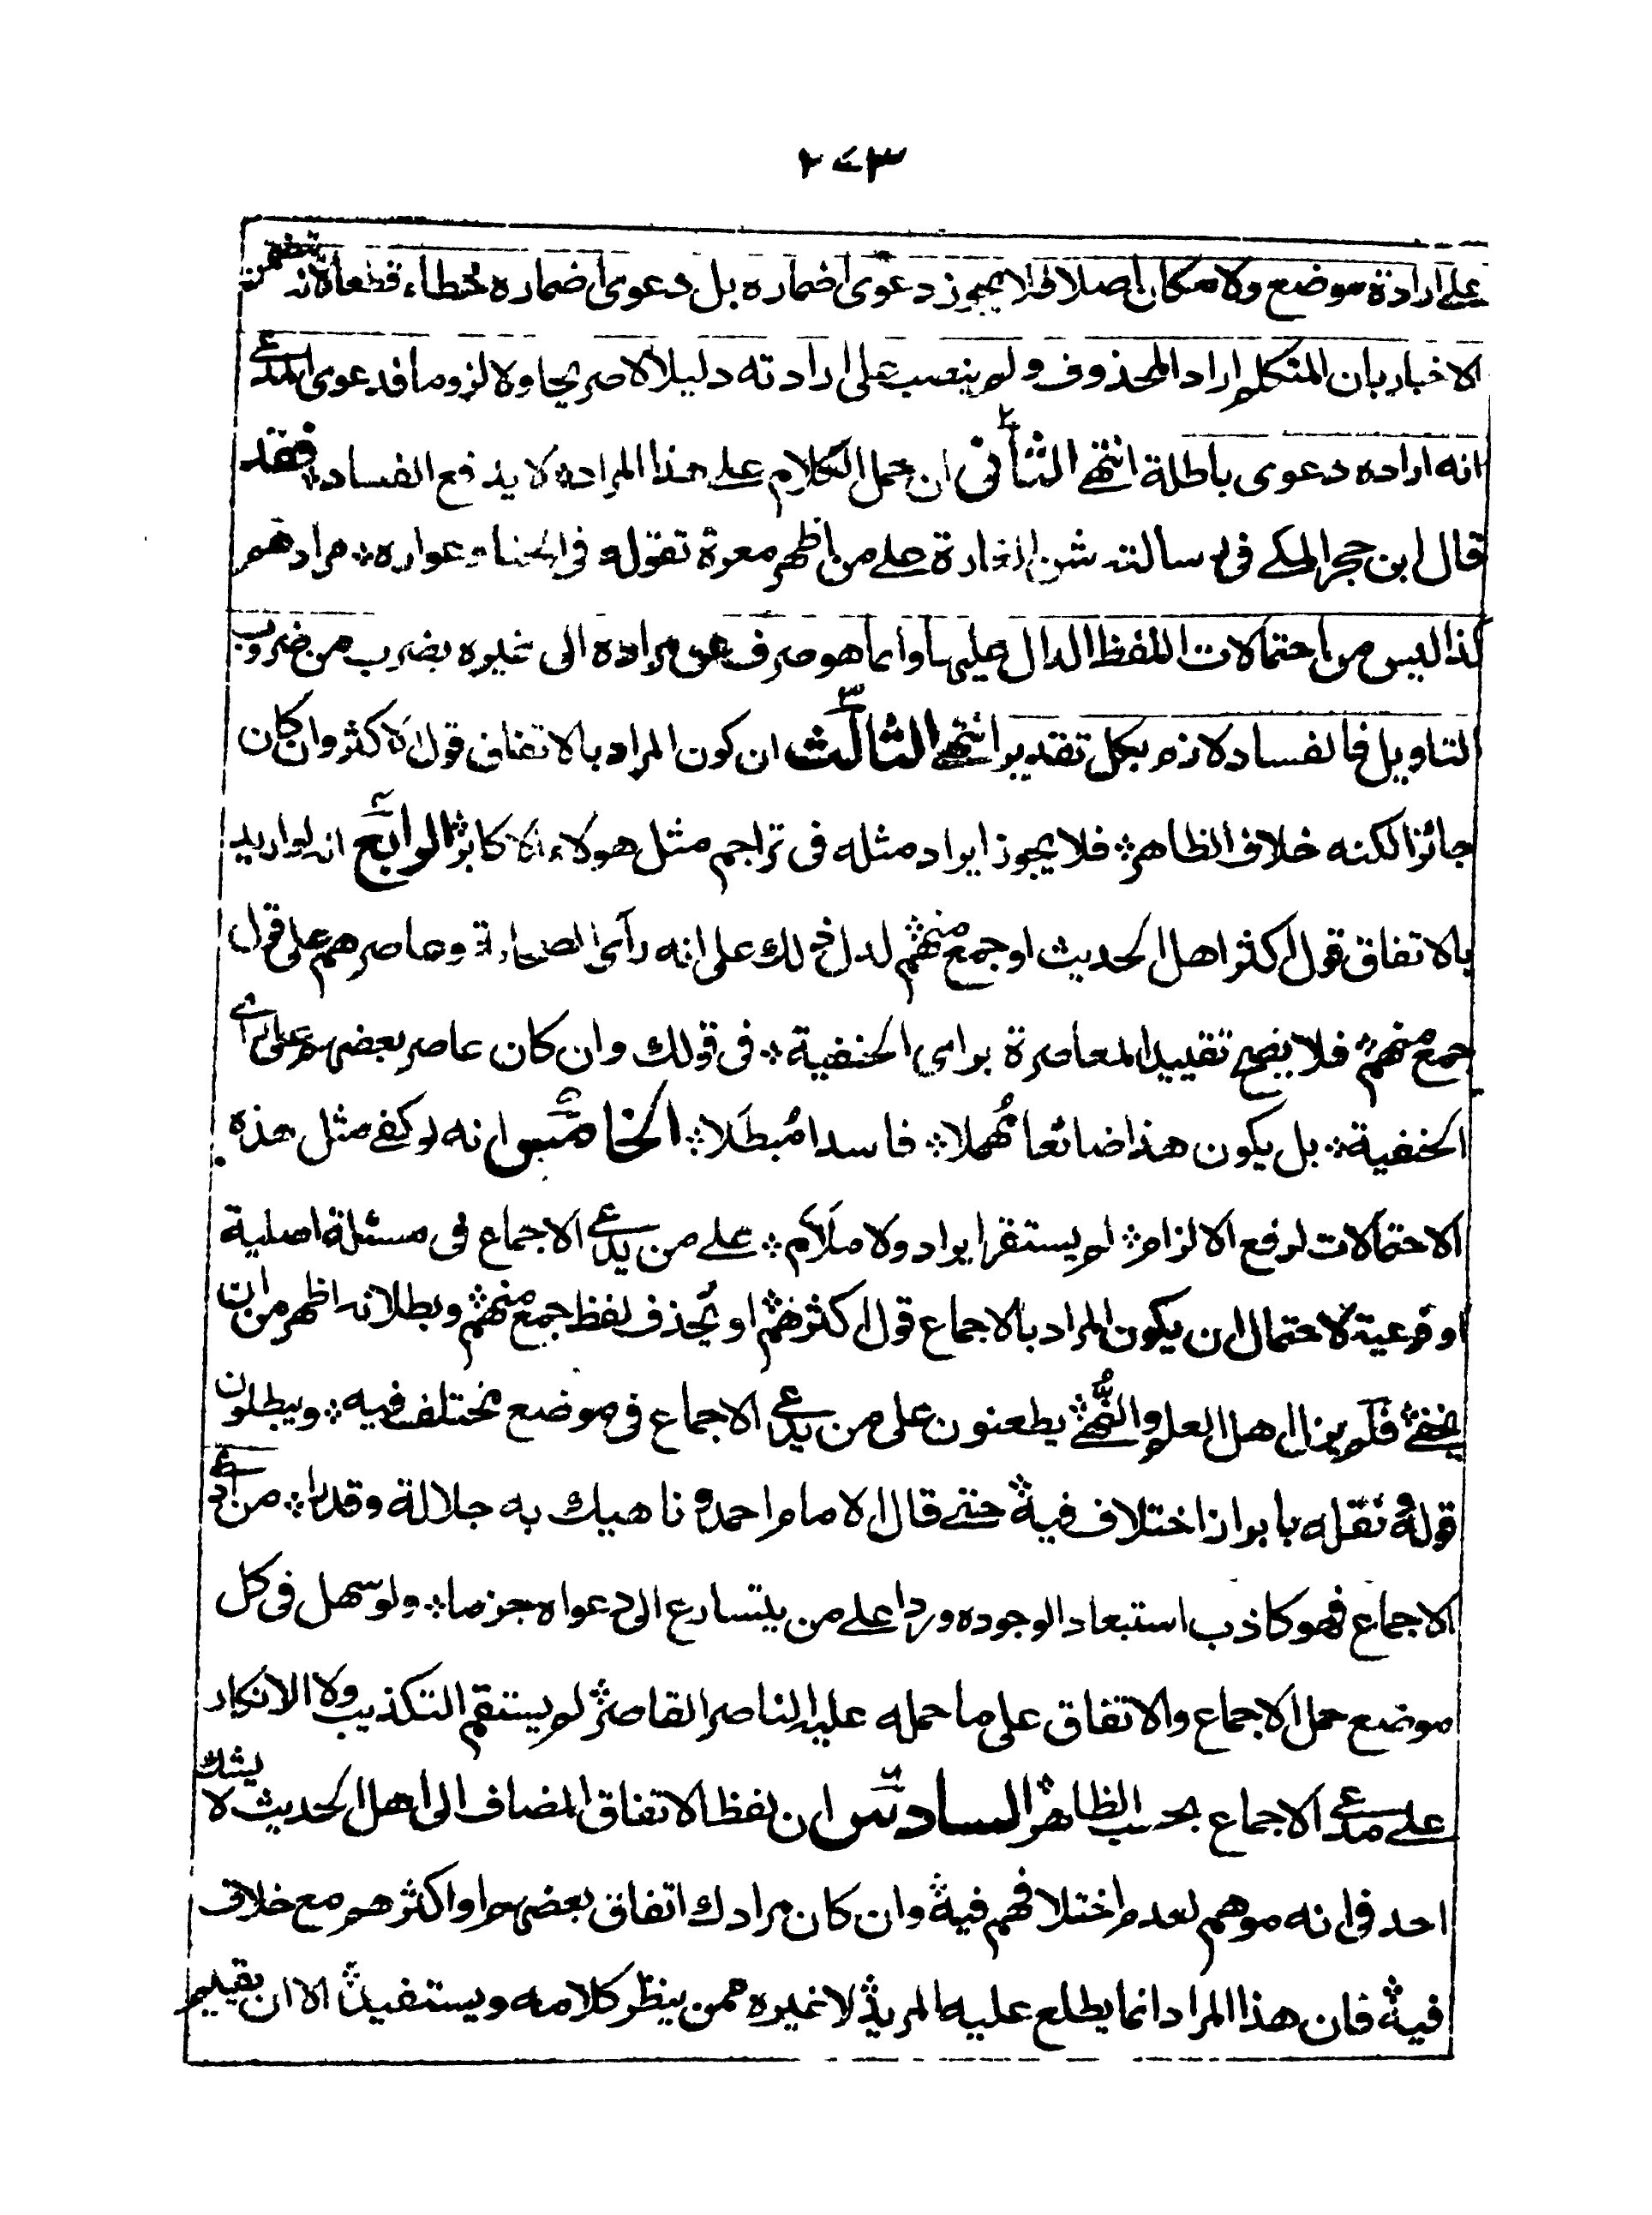 ٢٧٣
على ارادة موضع ولا مكان اصلا فلا يجوز دعوى اضماره بل دعوى اضماره خطاء قطعا لانه يتضمن
الاخبار بان المتكلم اراد المحذوف ولم ينصب على ارادته دليلا لا صريحا ولا لزوما فدعوى المدعى
انه اراده دعوى باطلة انتهى الثانى ان حمل الكلام على هذا المراد لا يدفع الفساد فقد
قال ابن حجر المكى فى رسالته شن الغارة على من اظهر معرة تقوله فى الحنا وعواره مرادهم
كذا ليس من احتمالات اللفظ الدال عليها وانما هو صرف عن مراده الى غيره بضرب من ضروب
التاويل فالفساد لازم بكل تقدير انتهى الثالث ان كون المراد بالاتفاق قول الاكثر وان كان
جائزا لكنه خلاف الظاهر فلا يجوز ايراد مثله فى تراجم مثل هولاء الاكابر الرابع انه لو اريد
بالاتفاق قول اكثر اهل الحديث او جمع منهم لدل ذلك على انه رأى الصحابة وعاصرهم على قول
جمع منهم فلا يصح تقييد المعاصرة براى الحنفية فى قولك وان كان عاصر بعضهم على راى
الحنفية بل يكون هذا ضائعا مهملا فاسدا مبطلا الخامس انه لو كفى مثل هذه
الاحتمالات لرفع الالزام لم يستقر ايراد ولا ملام على من يدعى الاجماع فى مسئلة اصلية
او فرعية لاحتمال ان يكون المراد بالاجماع قول اكثرهم او يحذف لفظ جمع منهم وبطلانه اظهر من ان
يخفى فلم يزال اهل العلم والنهى يطعنون على من يدعى الاجماع فى موضع مختلف فيه ويبطلون
قوله ونقله بابراز اختلاف فيه حتى قال الامام احمد وناهيك به جلالة وقدرا من ادعى
الاجماع فهو كاذب استبعادا لوجوده وردا على من يتسارع الى دعواه جزما ولو سهل فى كل
موضع حمل الاجماع والاتفاق على ما حمله عليه الناصر القاصر لم يستقم التكذيب ولا الانكار
على مدعى الاجماع بحسب الظاهر السادس ان لفظ الاتفاق المضاف الى اهل الحديث لا يشك
احد فى انه موهم لعدم اختلافهم فيه وان كان مرادك اتفاق بعضهم او اكثرهم مع خلاف
فيه فان هذا المراد انما يطلع عليه المريد لا غيره ممن ينظر كلامه ويستفيد الا ان يقيم